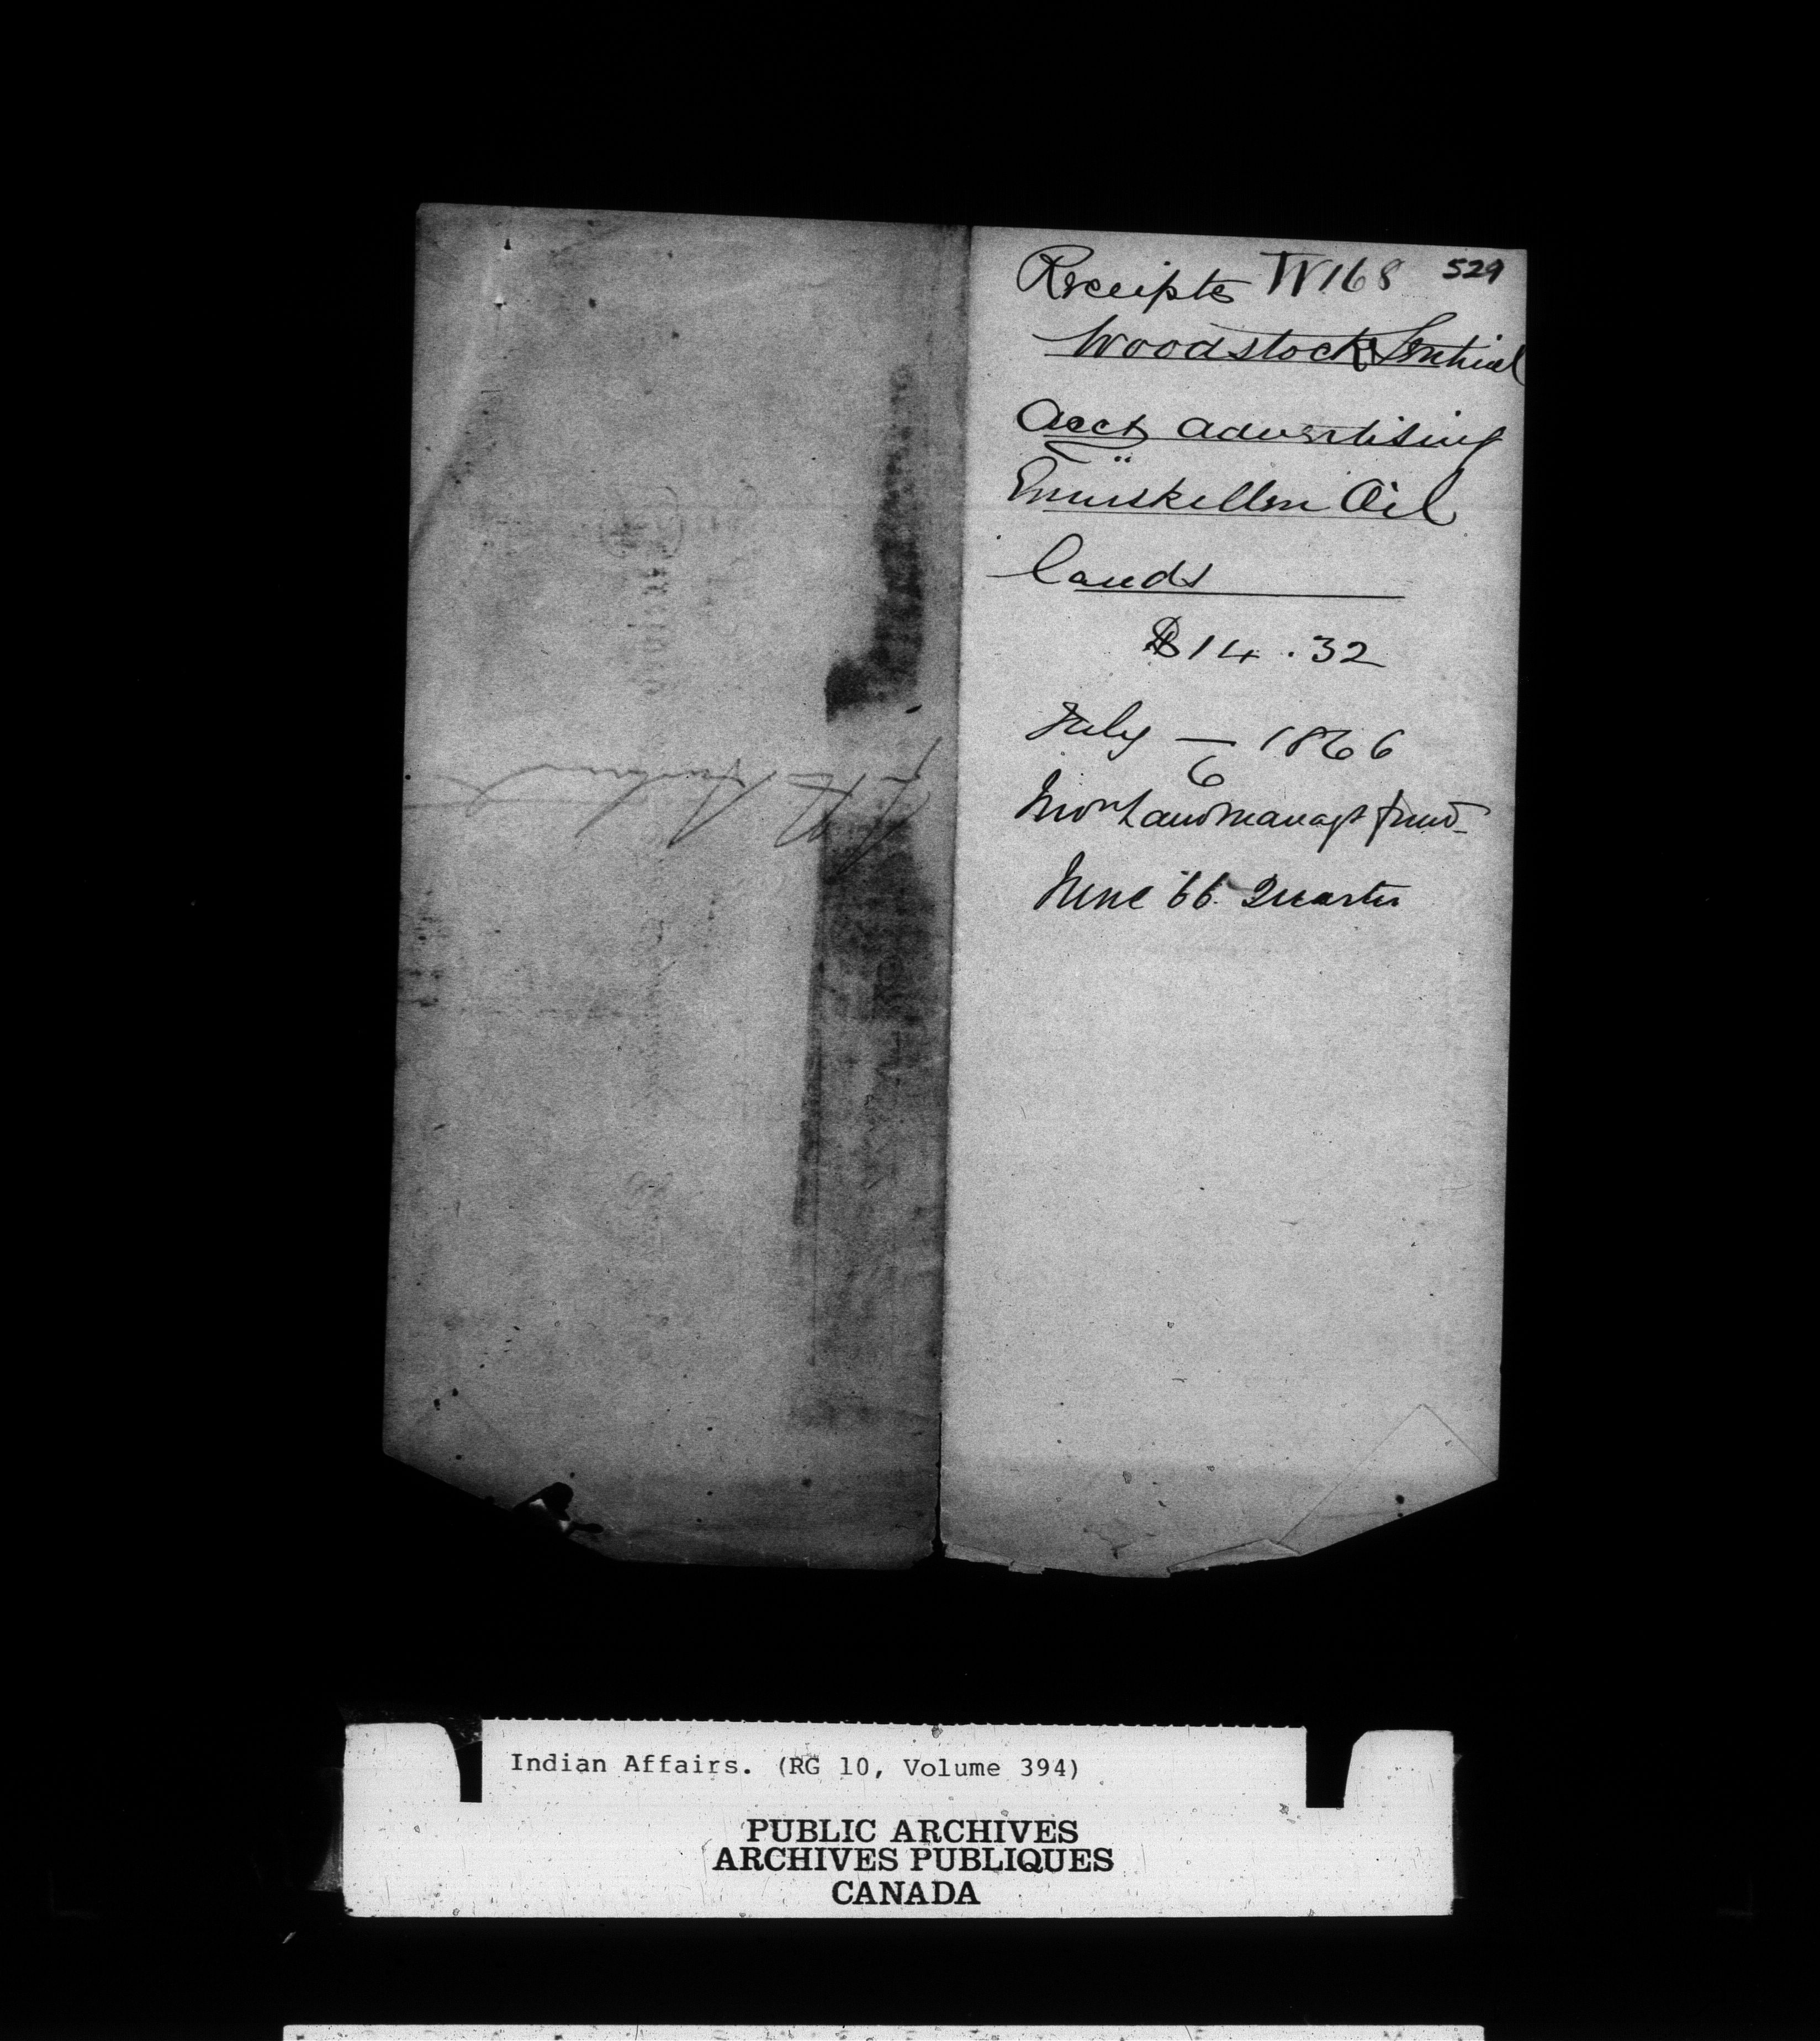 Receipts W168 529
Woodstock Sentinel
Acct advertising
Enniskillen Oil
Lands
$14.32
July — 1866
6
Land Managt fund
June '66 Quarter
Indian Affairs. (RG 10, Volume 394)
PUBLIC ARCHIVES
ARCHIVES PUBLIQUES
CANADA